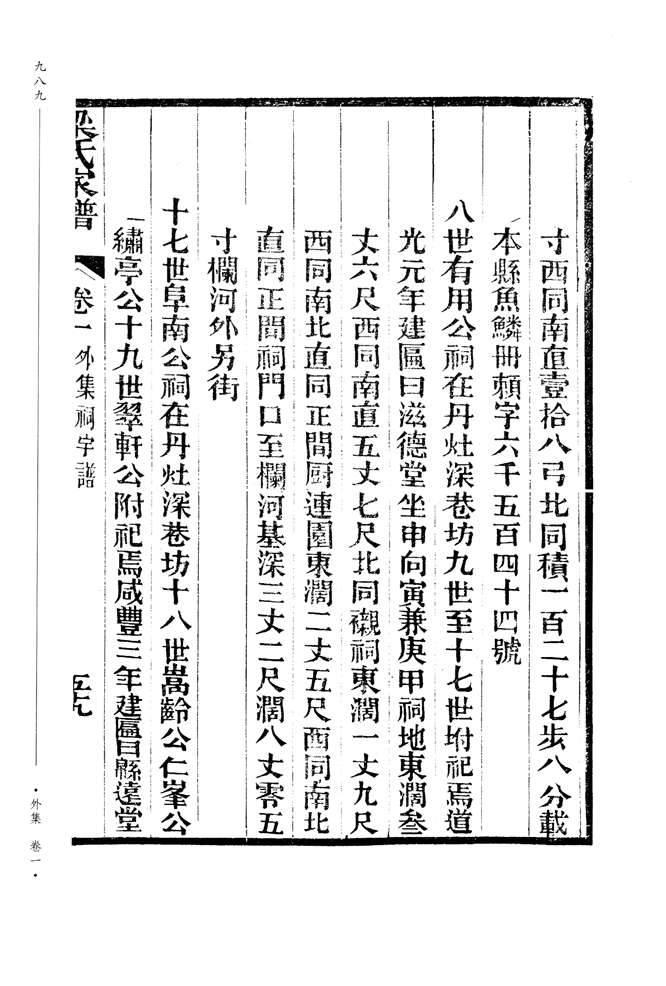 寸西同南直壹拾八弓北同積一百二十七步八分載
本縣魚鱗冊賴字六千五百四十四號
八世有用公祠在丹灶深巷坊九世至十七世坿祀焉道
光元年建匾曰滋德堂坐申向寅兼庚甲祠地東濶叁
丈六尺西同南直五丈七尺北同襯祠東濶一丈九尺
西同南北直同正間厨連園東濶二丈五尺西同南北
直同正間祠門口至欄河基深三丈二尺濶八丈零五
寸欄河外另街
十七世阜南公祠在丹灶深巷坊十八世嵩齡公仁峯公
繡亭公十九世翠軒公附祀焉咸豐三年建匾曰緜遠堂
梁氏家譜 卷一 外集祠宇譜 五九
九八九
·外集 卷一·